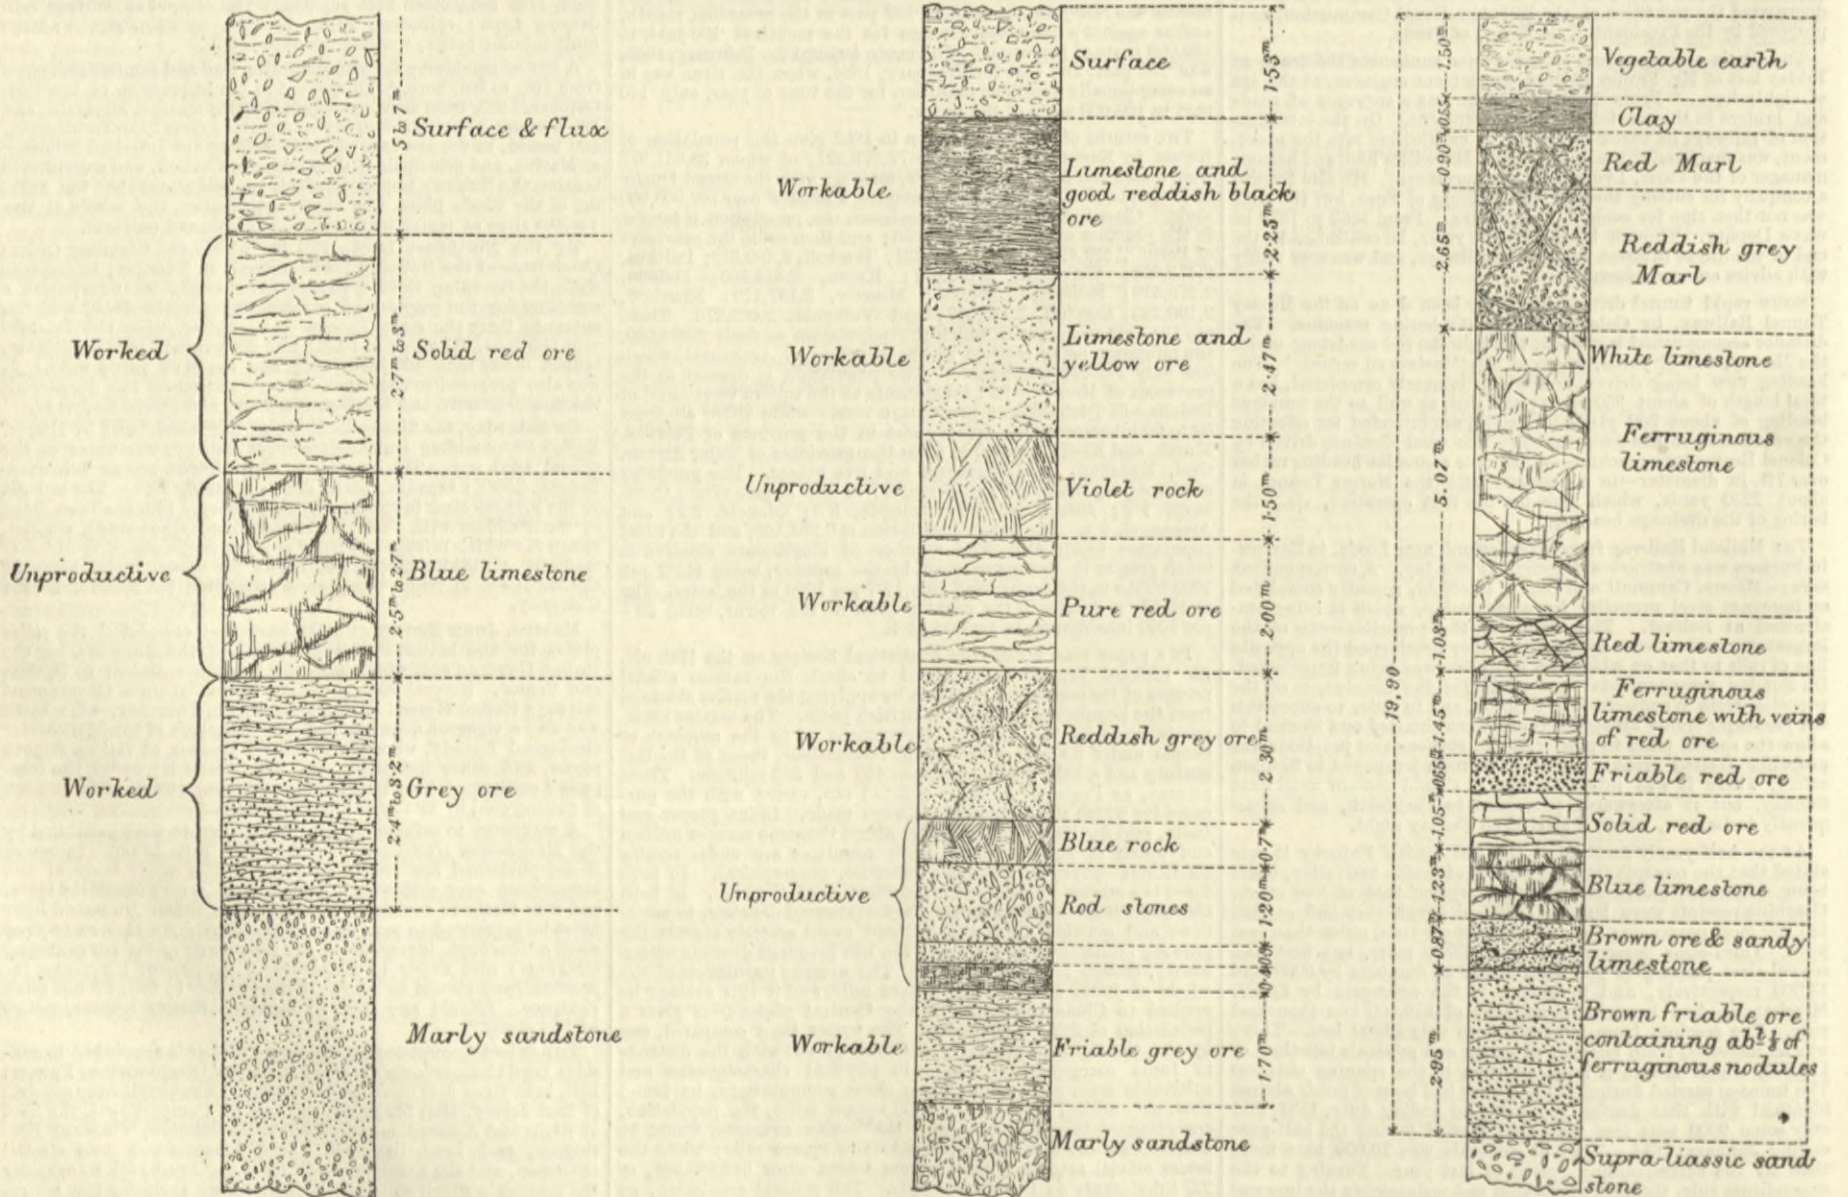 Surface & flux
5 to 7 m
Worked
Solid red ore
2·7 m to 3 m
Unproductive
Blue limestone
2·5 m to 2·7 m
Worked
Grey ore
2·4 m to 3·2 m
Marly sandstone
Surface
1·53 m
Workable
Limestone and
good reddish black
ore
2·25 m
Workable
Limestone and
yellow ore
2·47 m
Unproductive
Violet rock
1·50 m
Workable
Pure red ore
2·00 m
Workable
Reddish grey ore
2·30 m
Unproductive
Blue rock
Rod stones
1·20 m
Workable
Friable grey ore
1·70 m
Marly sandstone
19,90
Vegetable earth
1·50 m
Clay
Red Marl
0·90 m
Reddish grey
Marl
2·65 m
White limestone
Ferruginous
limestone
5·07 m
Red limestone
1·03 m
Ferruginous
limestone with veins
of red ore
1·45 m
Friable red ore
0·65 m
Solid red ore
1·05 m
Blue limestone
1·23 m
Brown ore & sandy
limestone
0·87 m
Brown friable ore
containing abt ⅓ of
ferruginous nodules
2·95 m
Supra-liassic sand
stone